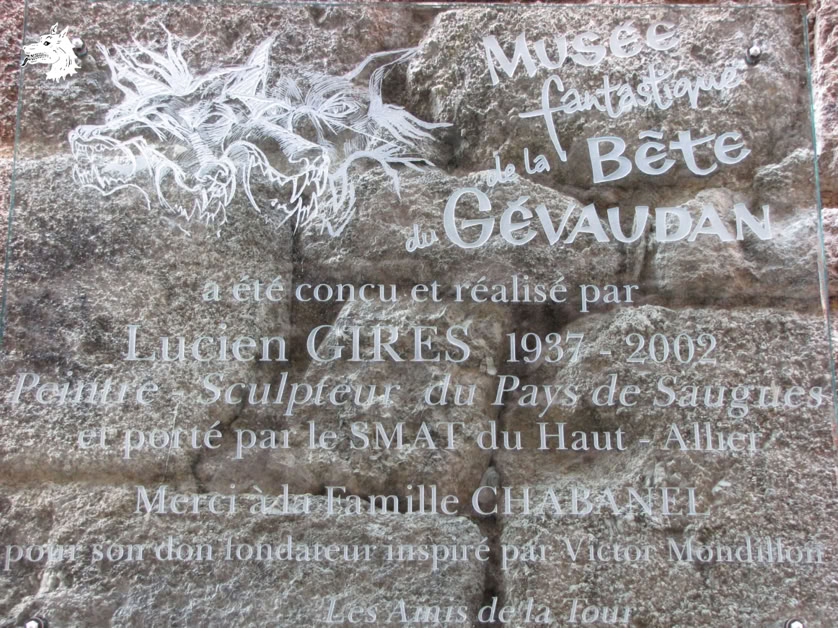 Musée
fantastique
de la Bête
du GÉVAUDAN
a été concu et réalisé par
Lucien GIRES 1937 - 2002
Peintre - Sculpteur du Pays de Saugues
et porté par le SMAT du Haut - Allier
Merci à la Famille CHABANEL
pour son don fondateur inspiré par Victor Mondillon
Les Amis de la Tour